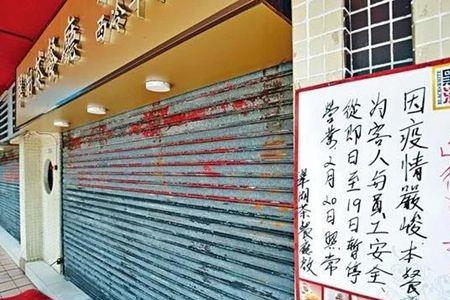 翠湖茶餐廳
因疫情嚴峻本餐
為客人與員工安全、
從即日至19日暫停
營業2月20日照常
翠湖茶餐廳啟